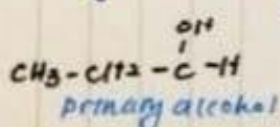 OH
CH3-CH2-C-H
primary alcohol